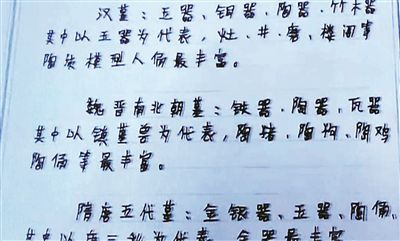 汉墓：玉器、铜器、陶器、竹木器
其中以玉器为代表，灶、井、磨、楼阁等
陶质模型人俑最丰富。
魏晋南北朝墓：铁器、陶器、瓦器
其中以镇墓兽为代表，陶猪、陶狗、陶鸡
陶俑等最丰富。
隋唐五代墓：金银器、玉器、陶俑、
其中以唐三彩为代表，金器最丰富